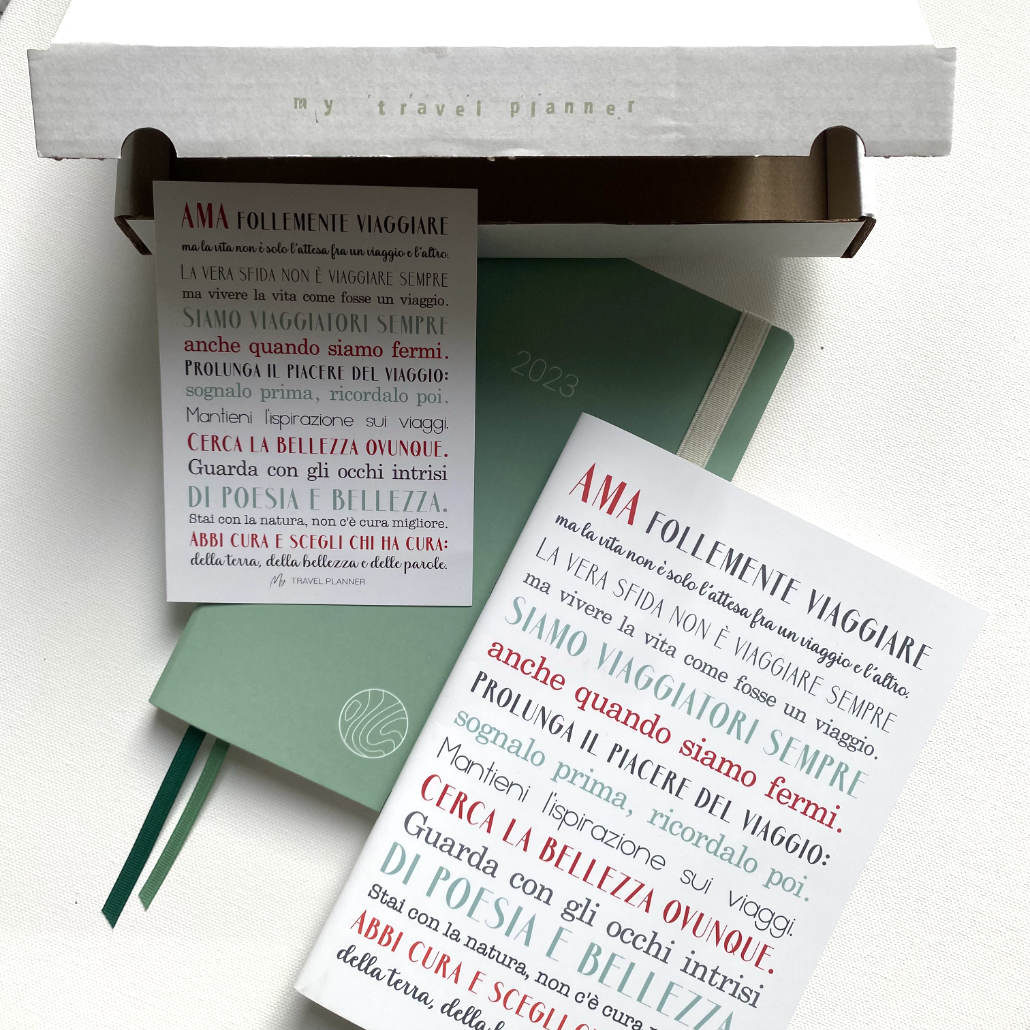 my travel planner
AMA FOLLEMENTE VIAGGIARE
ma la vita non è solo l'attesa fra un viaggio e l'altro.
LA VERA SFIDA NON È VIAGGIARE SEMPRE
ma vivere la vita come fosse un viaggio.
SIAMO VIAGGIATORI SEMPRE
anche quando siamo fermi.
PROLUNGA IL PIACERE DEL VIAGGIO:
sognalo prima, ricordalo poi.
Mantieni l'ispirazione sui viaggi.
CERCA LA BELLEZZA OVUNQUE.
Guarda con gli occhi intrisi
DI POESIA E BELLEZZA.
Stai con la natura, non c'è cura migliore.
ABBI CURA E SCEGLI CHI HA CURA:
della terra, della bellezza e delle parole.
My TRAVEL PLANNER
2023
AMA FOLLEMENTE VIAGGIARE
ma la vita non è solo l'attesa fra un viaggio e l'altro.
LA VERA SFIDA NON È VIAGGIARE SEMPRE
ma vivere la vita come fosse un viaggio.
SIAMO VIAGGIATORI SEMPRE
anche quando siamo fermi.
PROLUNGA IL PIACERE DEL VIAGGIO:
sognalo prima, ricordalo poi.
Mantieni l'ispirazione sui viaggi.
CERCA LA BELLEZZA OVUNQUE.
Guarda con gli occhi intrisi
DI POESIA E BELLEZZA
Stai con la natura, non c'è cura
ABBI CURA E SCEGLI
della terra, della